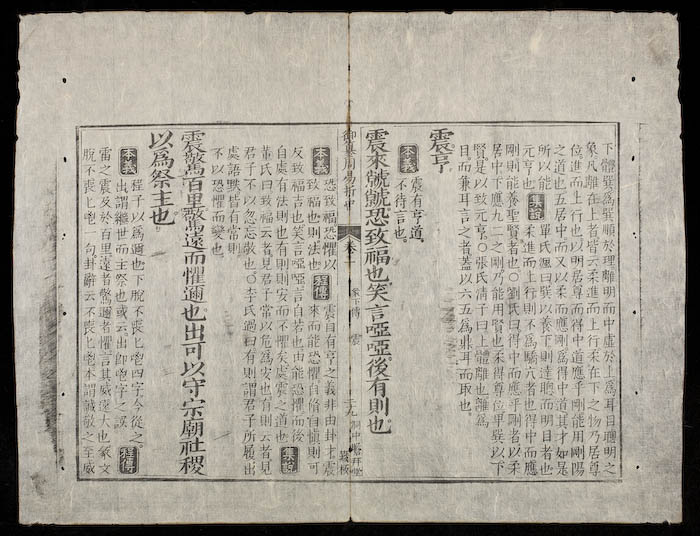 下體巽爲巽順於理離明而中虛於上爲耳目聰明之
象凡離在上者皆云柔進而上行柔在下之物乃居尊
位進而上行也以明居尊而得中道應乎剛能用剛陽
之道也五居中而又以柔而應剛爲得中道其才如是
所以能
元亨也
集說
單氏渢曰巽以養下則達聰而明目者也
柔進而上行則不爲驕亢者也得中而應
剛則能養聖賢者也〇劉氏曰得中而應乎剛者以柔
居中下應九二之剛乃能用賢也柔得尊位卑巽以下
賢是以致元亨〇張氏清子曰上體離也離爲
目而兼耳言之者蓋以六五爲鼎耳而取也
震亨
本義
震有亨道
不待言也
震來虩虩恐致福也笑言啞啞後有則也
御纂周易折中
彖下傳 震
本義
恐致福恐懼以
致福也則法也
程傳
震自有亨之義非由卦才震
來而能恐懼自脩自愼則可
反致福吉也笑言啞啞言自若也由能恐懼而後
自處有法則也有則則安而不懼矣處震之道也
集說
董氏曰致福云者見君子常以危爲安也有則云者見
君子不以忽忘敬也〇李氏過曰有則謂君子所履出
處語默皆有常則
不以恐懼而變也
震驚百里驚遠而懼邇也出可以守宗廟社稷
以爲祭主也
本義
程子以爲邇也下脫不喪匕鬯四字今從之
出謂繼世而主祭也或云出即鬯字之誤
程傳
雷之震及於百里遠者驚邇者懼言其威遠大也彖文
脫不喪匕鬯一句卦辭云不喪匕鬯本謂誠敬之至威